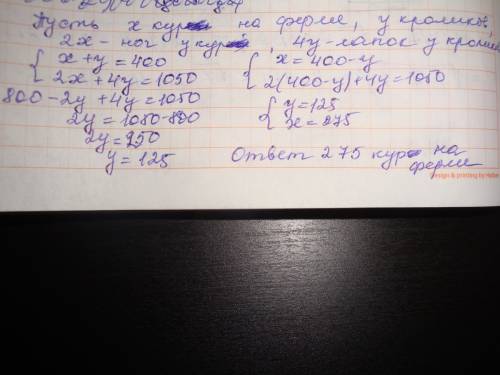 Пусть x кур на ферме, y кроликов,
2x - ног у кур, 4y - лапок у кроли
x + y = 400
2x + 4y = 1050
800 - 2y + 4y = 1050
2y = 1050 - 800
2y = 250
y = 125
x = 400 - y
2(400 - y) + 4y = 1050
y = 125
x = 275
Ответ 275 кур на
ферме
Design & printing by